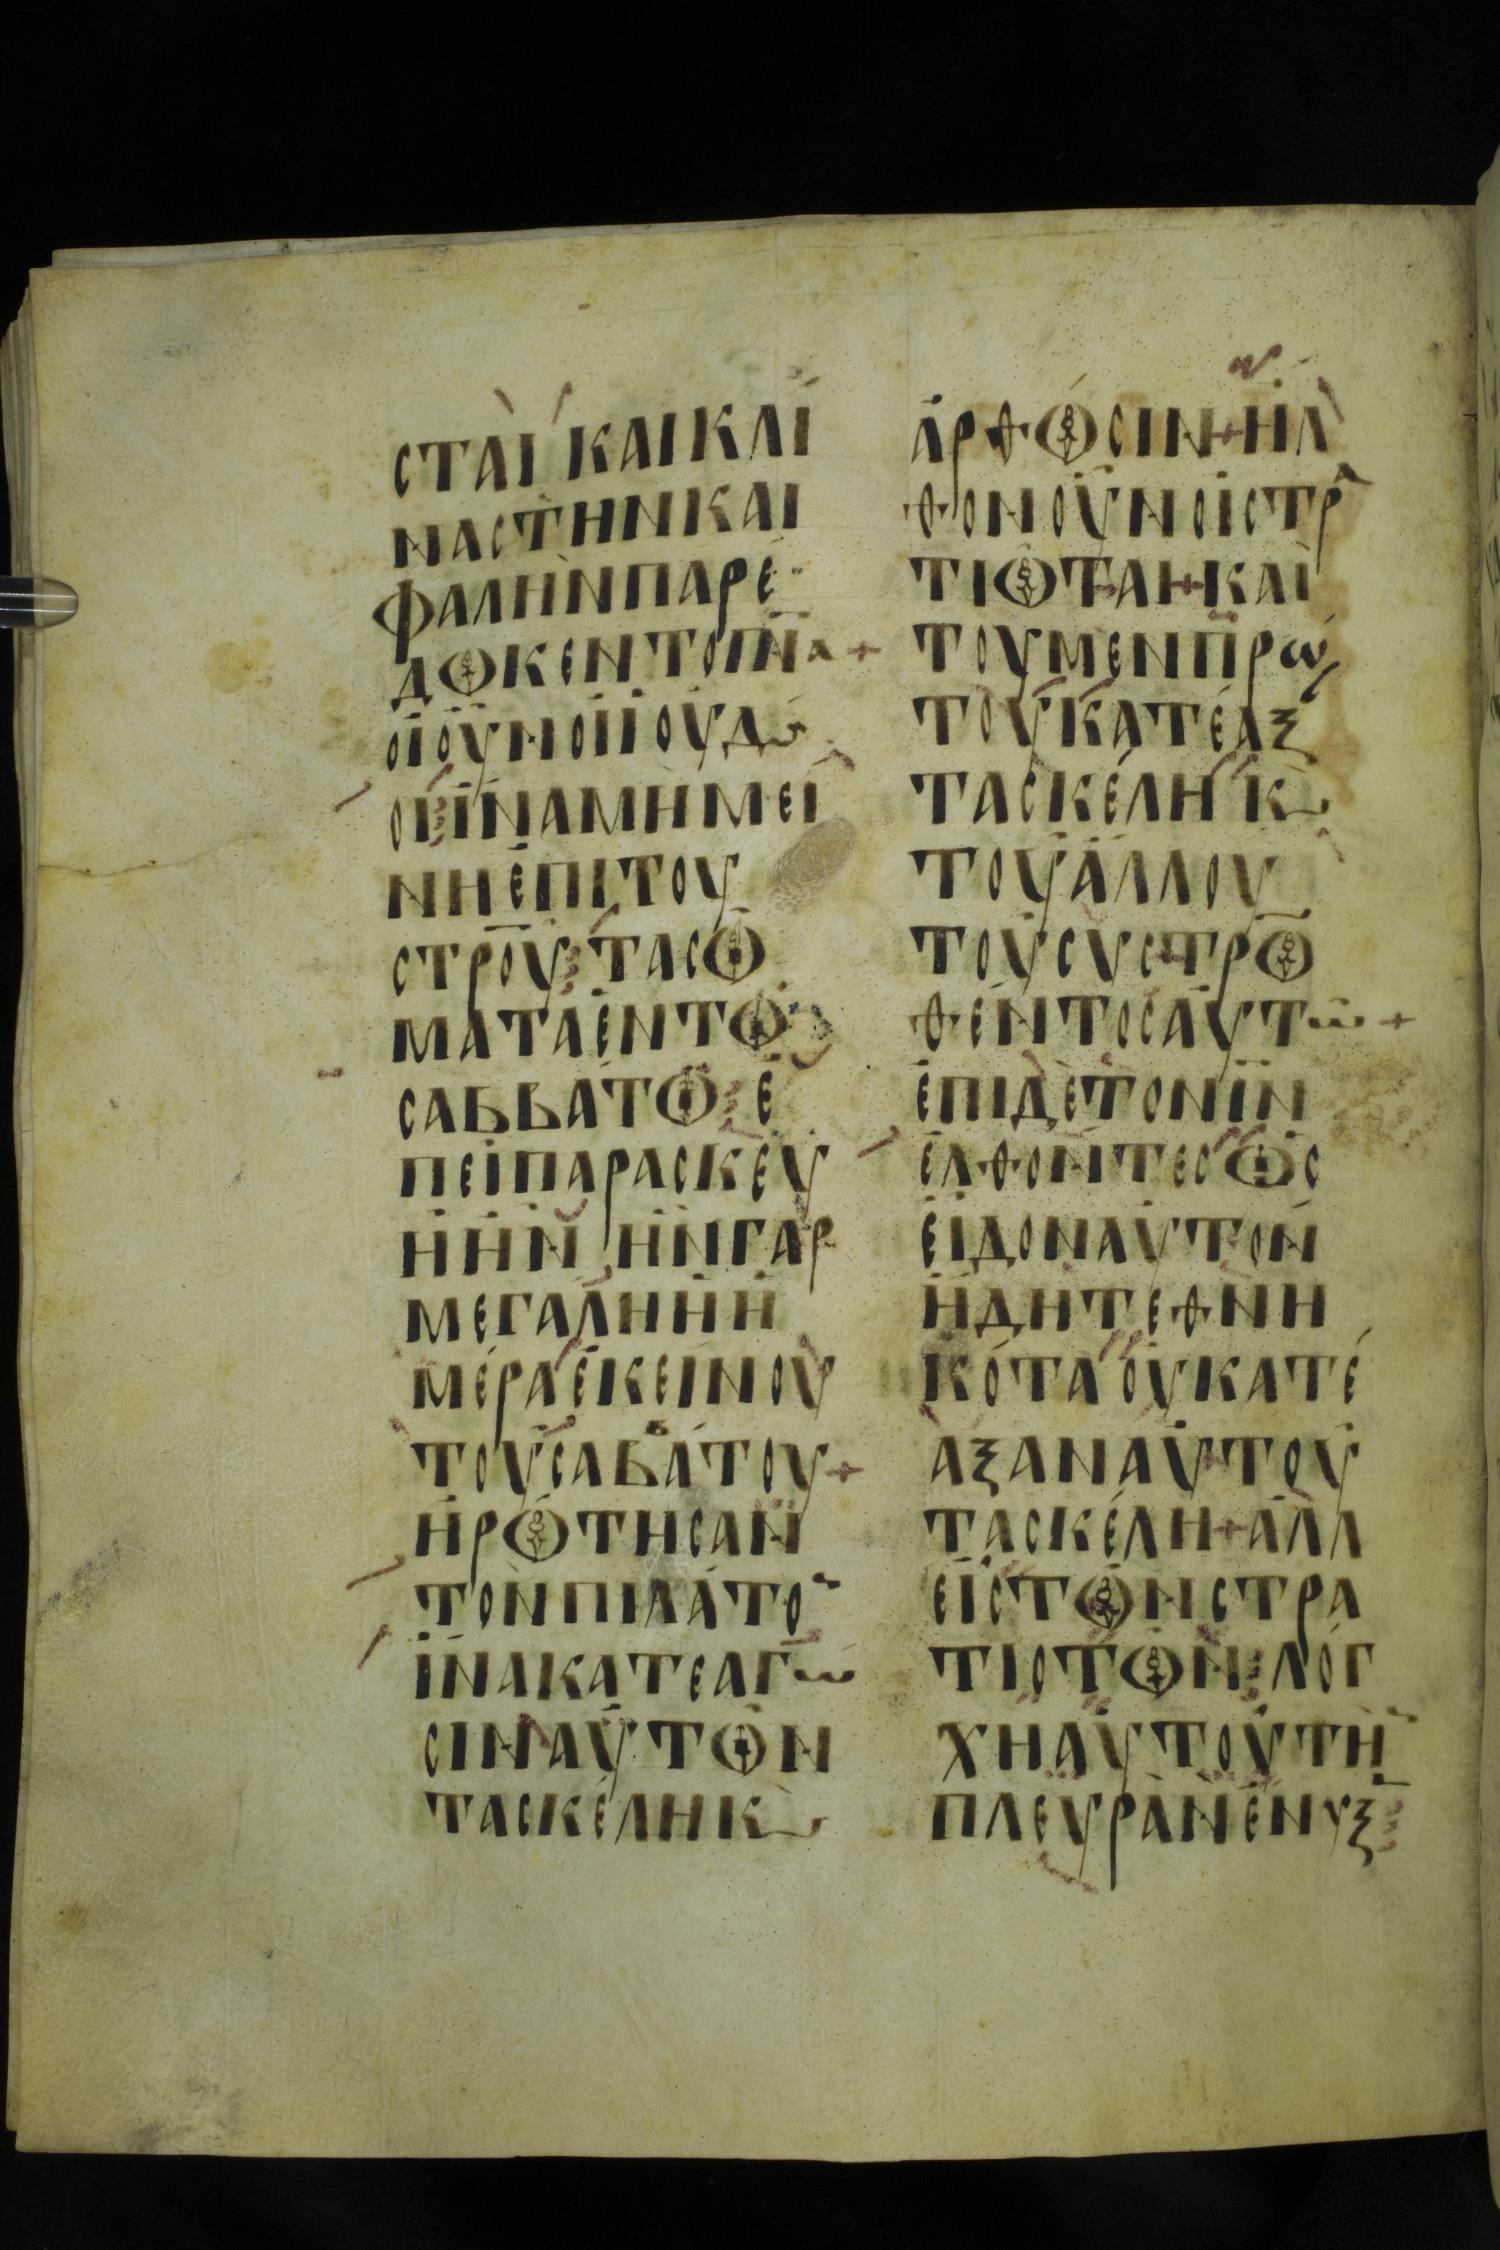 СΤΑΙ ΚΑΙ ΚΛΙ
ΝΑС ΤΗΝ ΚΑΙ
ΦΑΛΗΝ ΠΑΡΕ
ΔΟΚΕΝ ΤΟ ΠΝΑ +
ΟΙ ΟΥΝ ΙΟΥΔω
ΟΙ ΙΝΑ ΜΗ ΜΕΙ
ΝΗ ΕΠΙ ΤΟΥ
СΤΡΟΥ ΤΑ СΟ
ΜΑΤΑ ΕΝ ΤΟ
СΑΒΒΑΤΟ Ε
ΠΕΙ ΠΑΡΑСΚΕΥ
Η ΗΝ ΗΝ ΓΑΡ
ΜΕΓΑΛΗ Η Η
ΜΕΡΑ ΕΚΕΙΝΟΥ
ΤΟΥ СΑΒΒΑΤΟΥ +
ΗΡΟΤΗСΑΝ
ΤΟΝ ΠΙΛΑΤΟ
ΙΝΑ ΚΑΤΕΑΓω
СΙΝ ΑΥΤΟΝ
ΤΑ СΚΕΛΗ Κ
ΑΡΘΟСΙΝ + ΗΛ
ΘΟΝ ΟΥΝ ΟΙ СΤΡΑ
ΤΙΟΤΑΙ + ΚΑΙ
ΤΟΥ ΜΕΝ ΠΡω
ΤΟΥ ΚΑΤΕΑΞ
ΤΑ СΚΕΛΗ Κ
ΤΟΥ ΑΛΛΟΥ
ΤΟΥ СΥСΤΡΟ
ΘΕΝΤΟС ΑΥΤω +
ΕΠΙ ΔΕ ΤΟΝ ΙΝ
ΕΛΘΟΝΤΕС ΟС
ΕΙΔΟΝ ΑΥΤΟΝ
ΗΔΗ ΤΕΘΝΗ
ΚΟΤΑ ΟΥ ΚΑΤΕ
ΑΞΑΝ ΑΥΤΟΥ
ΤΑ СΚΕΛΗ + ΑΛΛ
ΕΙС ΤΟΝ СΤΡΑ
ΤΙΟΤΟΝ ΛΟΓ
ΧΗ ΑΥΤΟΥ ΤΗ
ΠΛΕΥΡΑΝ ΕΝΥΞ